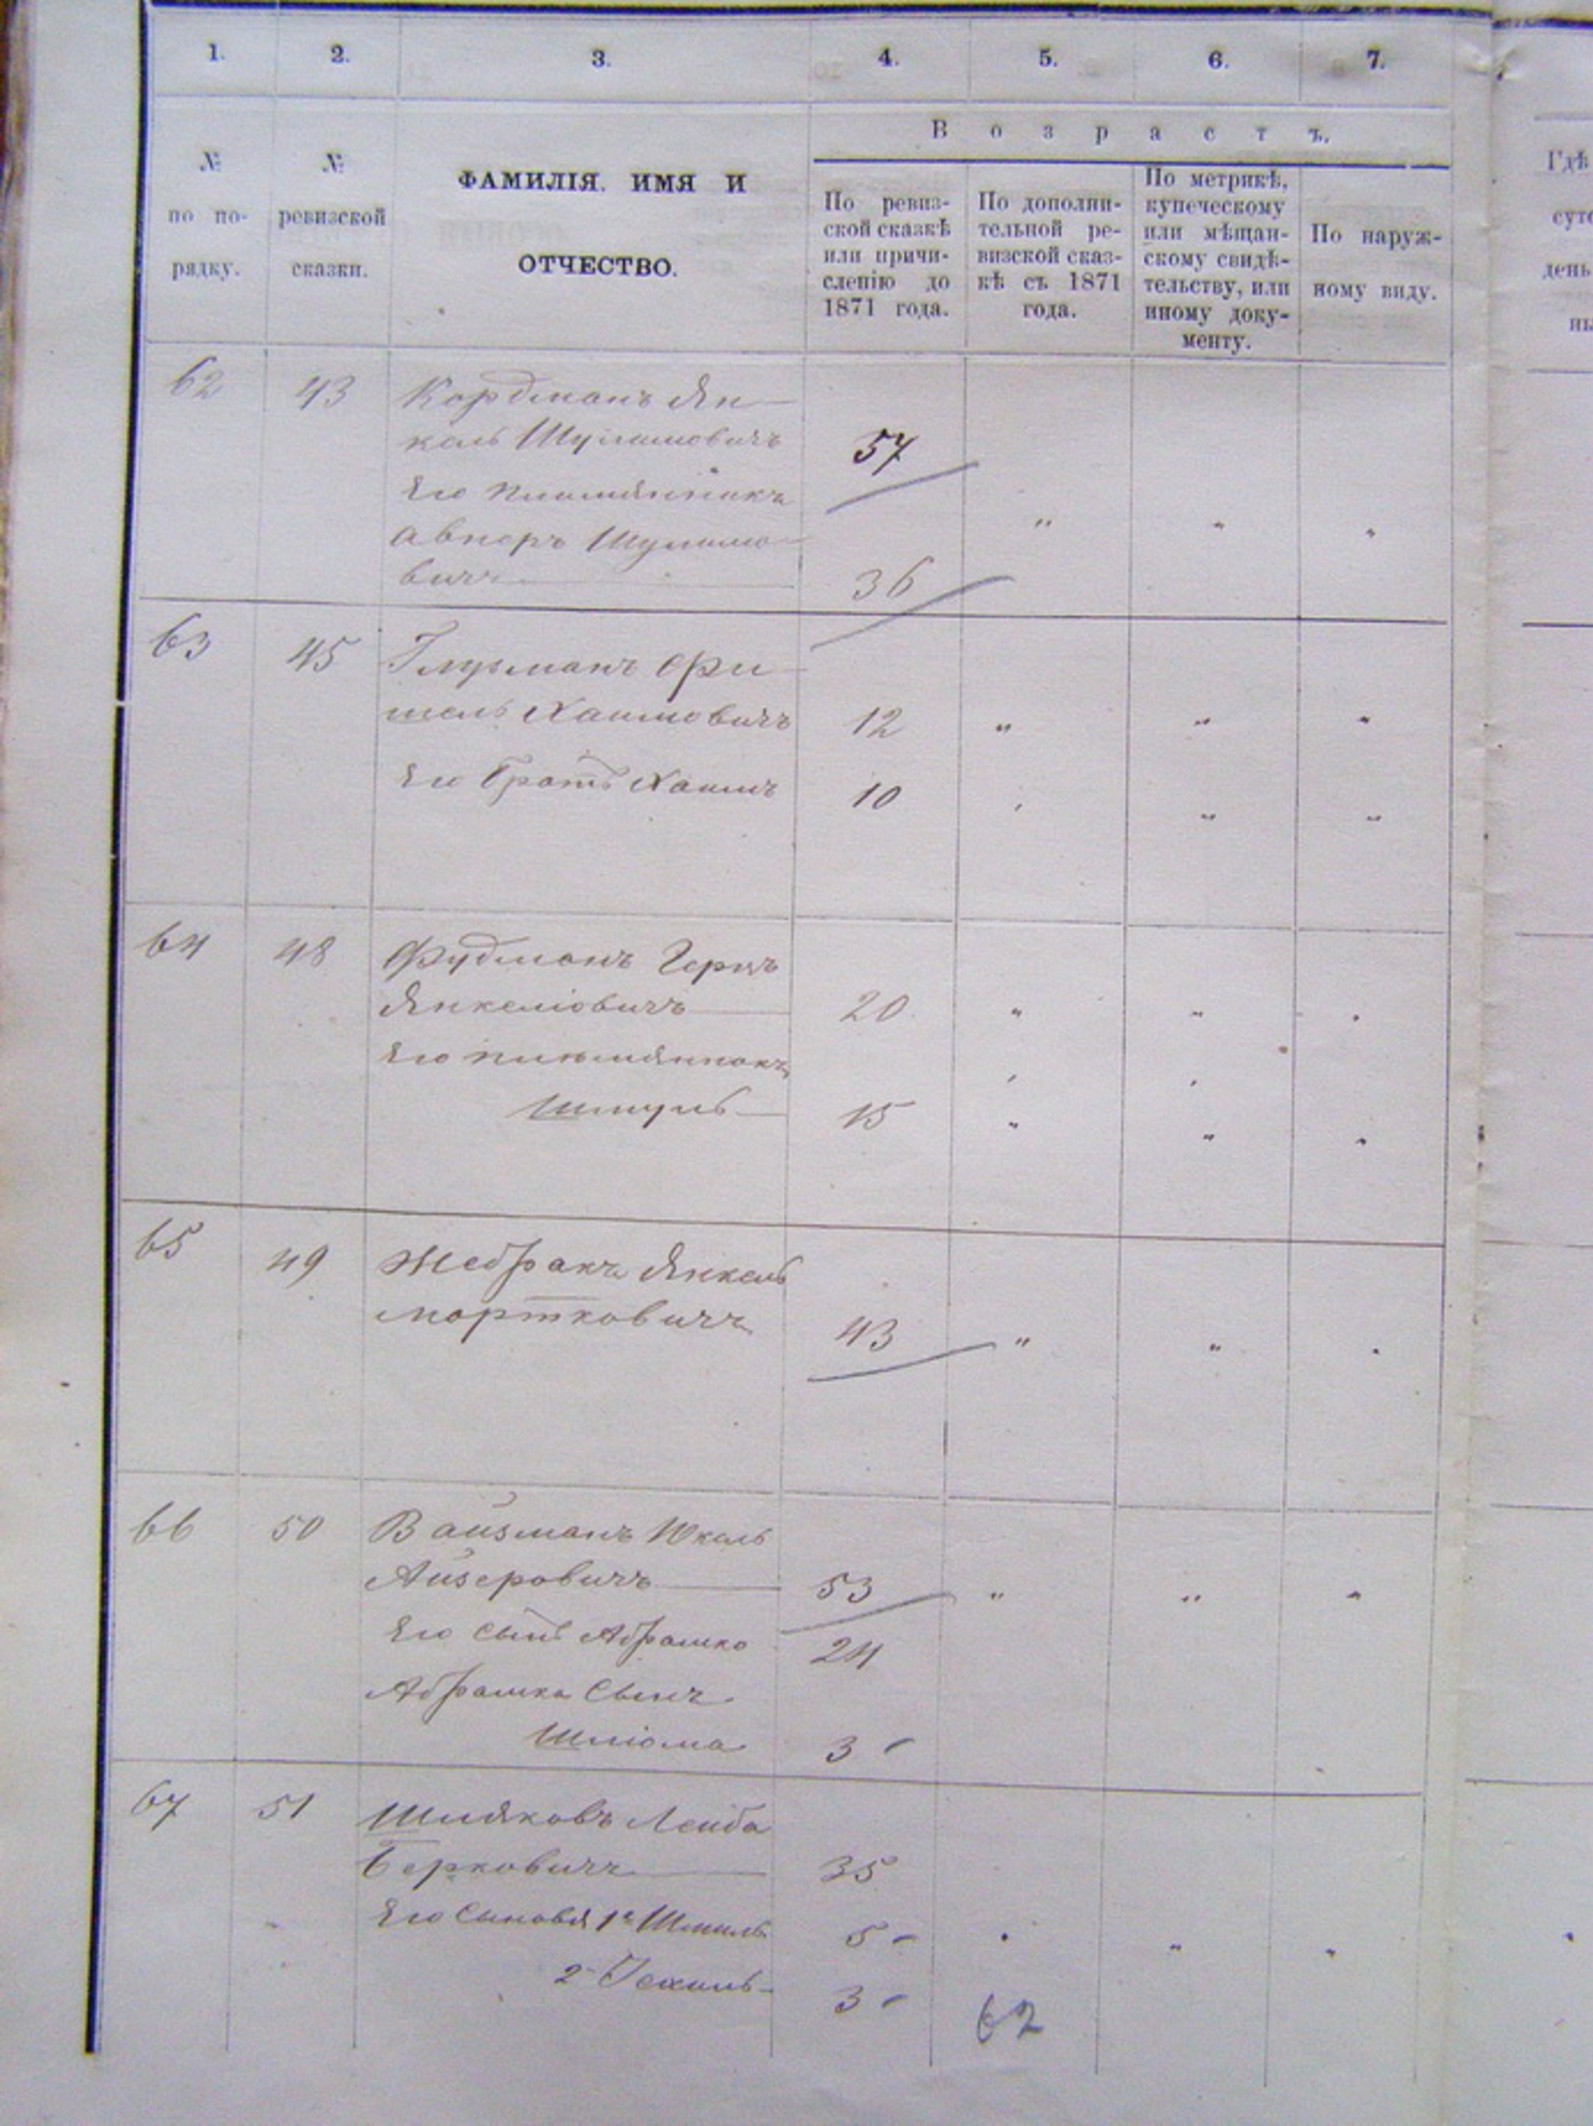 1. 2. 3. 4. 5. 6. 7.
№ по по-
рядку.
№
ревизской
сказки.
ФАМИЛІЯ, ИМЯ И
ОТЧЕСТВО.
Возрастъ.
По ревиз-
ской сказкѣ
или причи-
сленію до
1871 года.
По дополни-
тельной ре-
визской сказ-
кѣ съ 1871
года.
По метрикѣ,
купеческому
или мѣщан-
скому свидѣ-
тельству, или
иному доку-
менту.
По наруж-
ному виду.
Гдѣ
день
62 43 Кордманъ Ян-
кель Шулимовичъ 57
Его племянникъ
Авнеръ Шулимо- " " "
вичъ 36
63 45 Глузманъ Фи-
шель Хаимовичъ 12 " " "
Его братъ Хаимъ 10 " " "
64 48 Фудманъ Герцъ
Янкеліовичъ 20 " " "
Его племянникъ
Шмуль 15 " " "
65 49 Жебракъ Янкель
Мортковичъ 43 " " "
66 50 Вайзманъ Юкель
Айзеровичъ 53 " " "
Его сынъ Абрашко 24
Абрашка сынъ
Шліома 3 -
67 51 Шляковъ Лейба
Берковичъ 35
Его сыновья 1й Шмиль 5 - " " "
2й 3 -
62